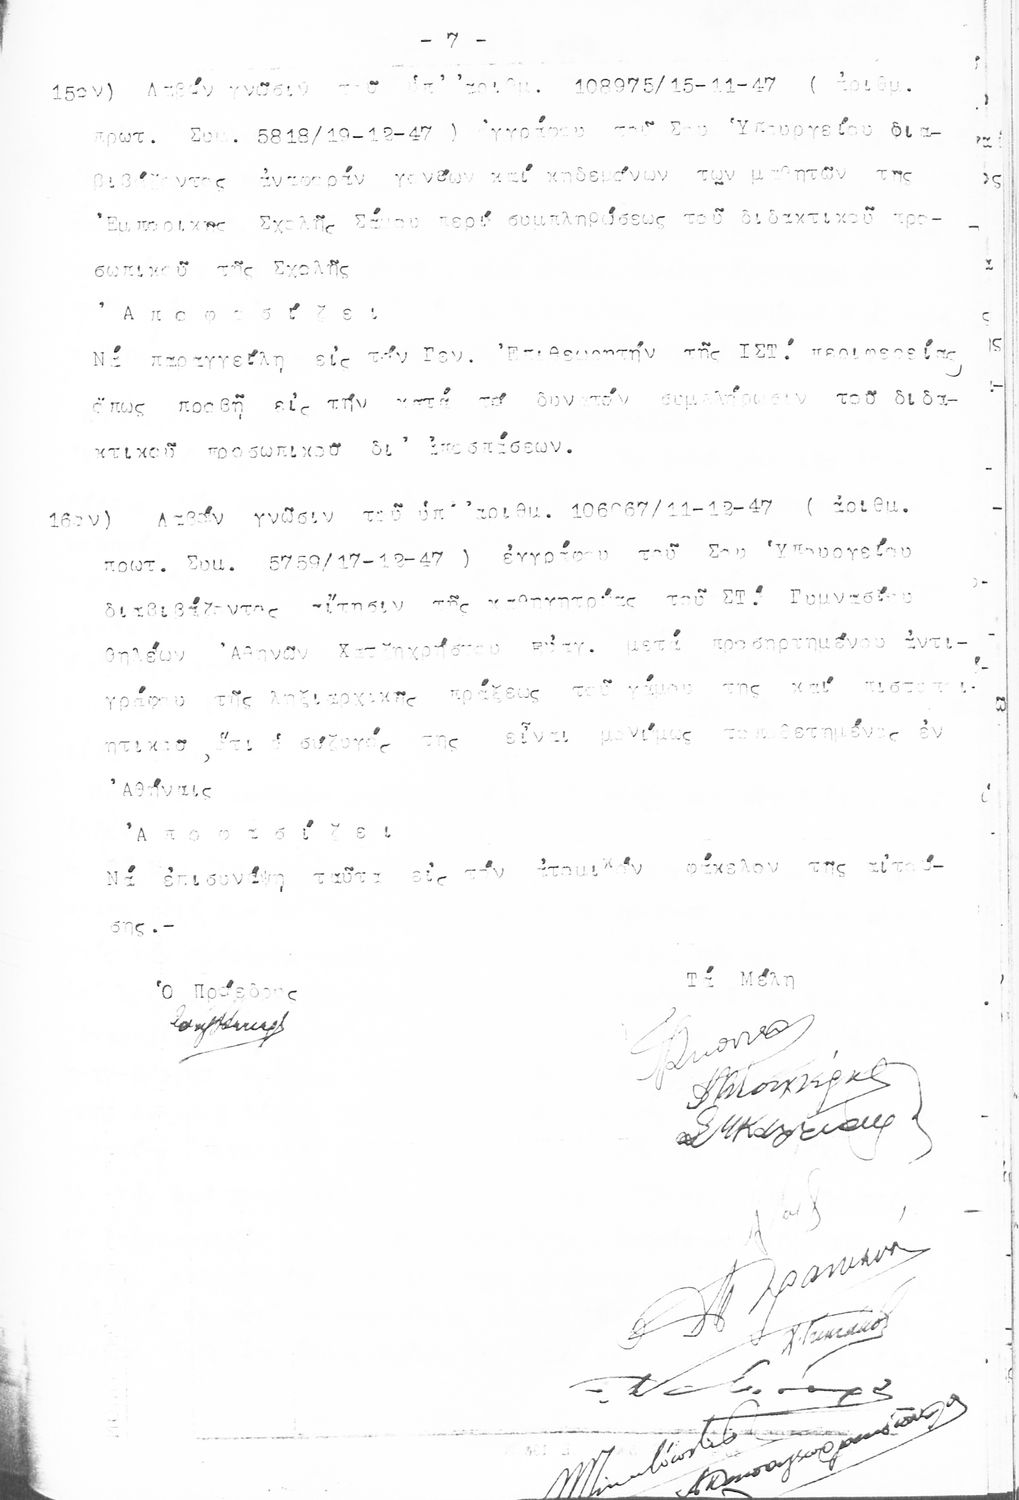 - 7 -
15ον) Λαβόν γνῶσιν τοῦ ὑπ' ἀριθμ. 108975/15-11-47 ( ἀριθμ.
πρωτ. Συμ. 5818/19-12-47 ) ἐγγράφου τοῦ Σου Ὑπουργείου δια-
βιβάζοντος ἀναφοράν γονέων καί κηδεμόνων τῶν μαθητῶν τῆς
Ἐμπορικῆς Σχολῆς Σάμου περί συμπληρώσεως τοῦ διδακτικοῦ προ-
σωπικοῦ τῆς Σχολῆς
Ἀ π ο φ α σ ί ζ ε ι
Νά παραγγείλη εἰς τόν Γεν. Ἐπιθεωρητήν τῆς ΙΣΤ! περιφερείας,
ὅπως προβῆ εἰς τήν κατά τό δυνατόν συμπλήρωσιν τοῦ διδα-
κτικοῦ προσωπικοῦ δι' ἀποσπάσεων.
16ον) Λαβόν γνῶσιν τοῦ ὑπ' ἀριθμ. 106067/11-12-47 ( ἀριθμ.
πρωτ. Συμ. 5759/17-12-47 ) ἐγγράφου τοῦ Σου Ὑπουργείου
διαβιβάζοντος αἴτησιν τῆς καθηγητρίας τοῦ ΣΤ! Γυμνασίου
θηλέων Ἀθηνῶν Χατζηχρήστου μετά προσηρτημένου ἀντι-
γράφου τῆς ληξιαρχικῆς πράξεως τοῦ γάμου της καί πιστοποι-
ητικοῦ, ὅτι ὁ σύζυγός της εἶναι μονίμως τοποθετημένος ἐν
Ἀθήναις
Ἀ π ο φ α σ ί ζ ε ι
Νά ἐπισυνάψη ταῦτα εἰς τόν ἀτομικόν φάκελον τῆς αἰτού-
σης.-
Ὁ Πρόεδρος
Τά Μέλη